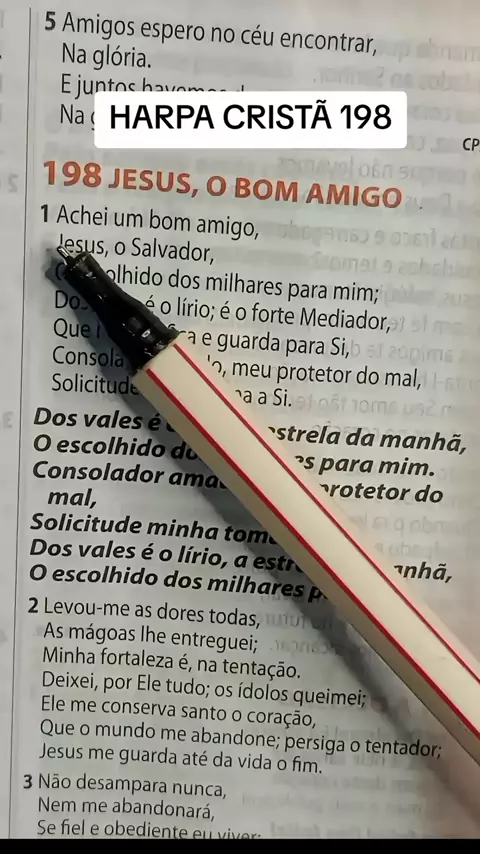 5 Amigos espero no céu encontrar,
Na glória.
E juntos
Na
HARPA CRISTÃ 198
CP
198 JESUS, O BOM AMIGO
1 Achei um bom amigo,
Jesus, o Salvador,
olhido dos milhares para mim;
Do é o lírio; é o forte Mediador,
Que a e guarda para Si,
Consola o, meu protetor do mal,
Solicitude a a Si.
Dos vales é estrela da manhã,
O escolhido do es para mim.
Consolador ama protetor do
mal,
Solicitude minha tom
Dos vales é o lírio, a estr anhã,
O escolhido dos milhares p
2 Levou-me as dores todas,
As mágoas lhe entreguei;
Minha fortaleza é, na tentação.
Deixei, por Ele tudo; os ídolos queimei;
Ele me conserva santo o coração,
Que o mundo me abandone; persiga o tentador;
Jesus me guarda até da vida o fim.
3 Não desampara nunca,
Nem me abandonará,
Se fiel e obediente eu viver;